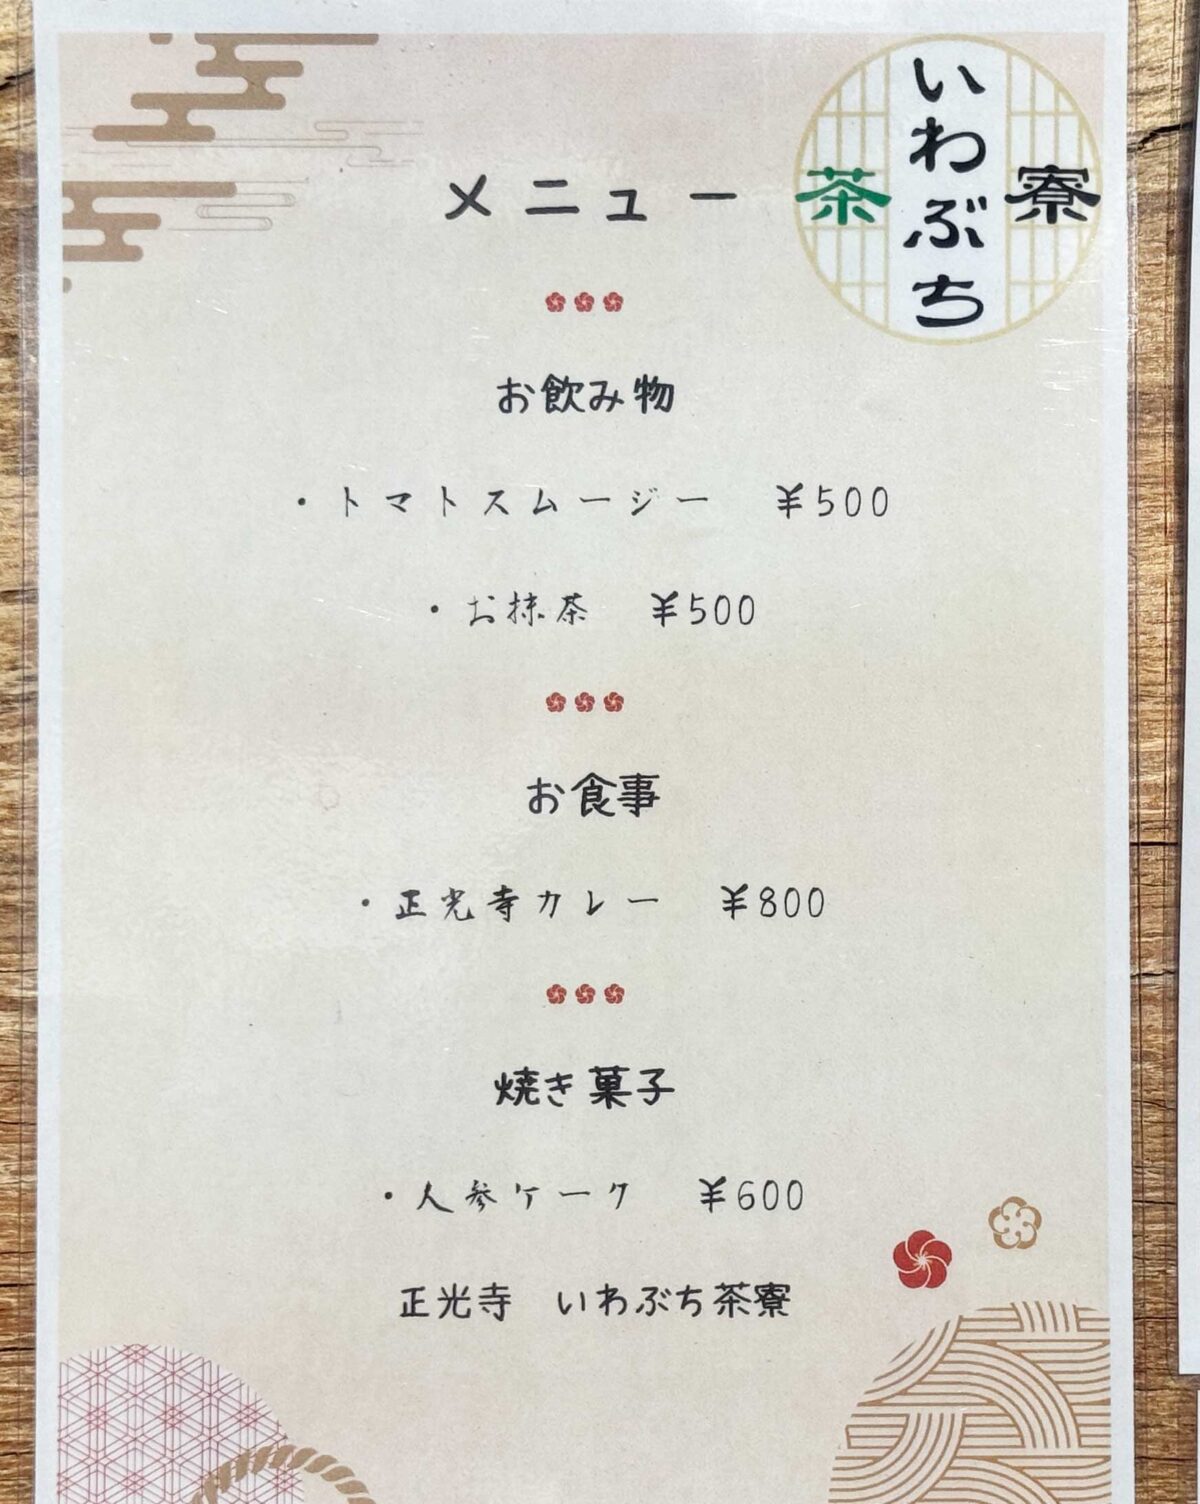 いわぶち
茶寮
メニュー
お飲み物
・トマトスムージー ¥500
・お抹茶 ¥500
お食事
・正光寺カレー ¥800
焼き菓子
・人参ケーク ¥600
正光寺 いわぶち茶寮